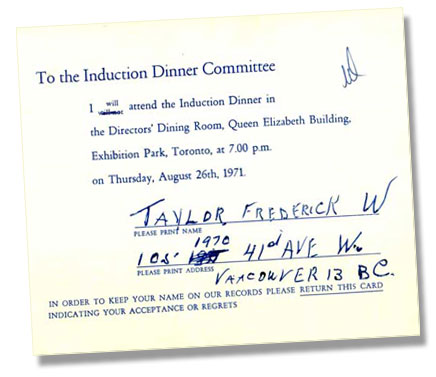 To the Induction Dinner Committee
I will attend the Induction Dinner in
will not
the Directors' Dining Room, Queen Elizabeth Building,
Exhibition Park, Toronto, at 7.00 p.m.
on Thursday, August 26th, 1971.
TAYLOR FREDERICK W
PLEASE PRINT NAME
1970
105' 41st AVE W.
PLEASE PRINT ADDRESS
VANCOUVER 13 BC.
IN ORDER TO KEEP YOUR NAME ON OUR RECORDS PLEASE RETURN THIS CARD
INDICATING YOUR ACCEPTANCE OR REGRETS